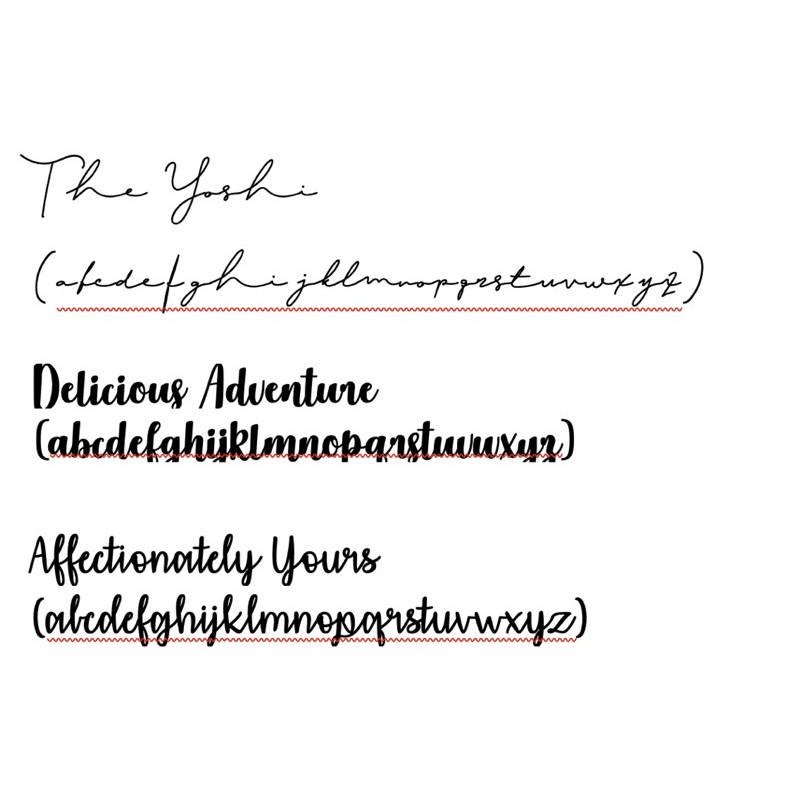 The Yoshi
(abcdefghijklmnopqrstuvwxyz)
Delicious Adventure
(abcdefghijklmnopqrstuvwxyz)
Affectionately Yours
(abcdefghijklmnopqrstuvwxyz)